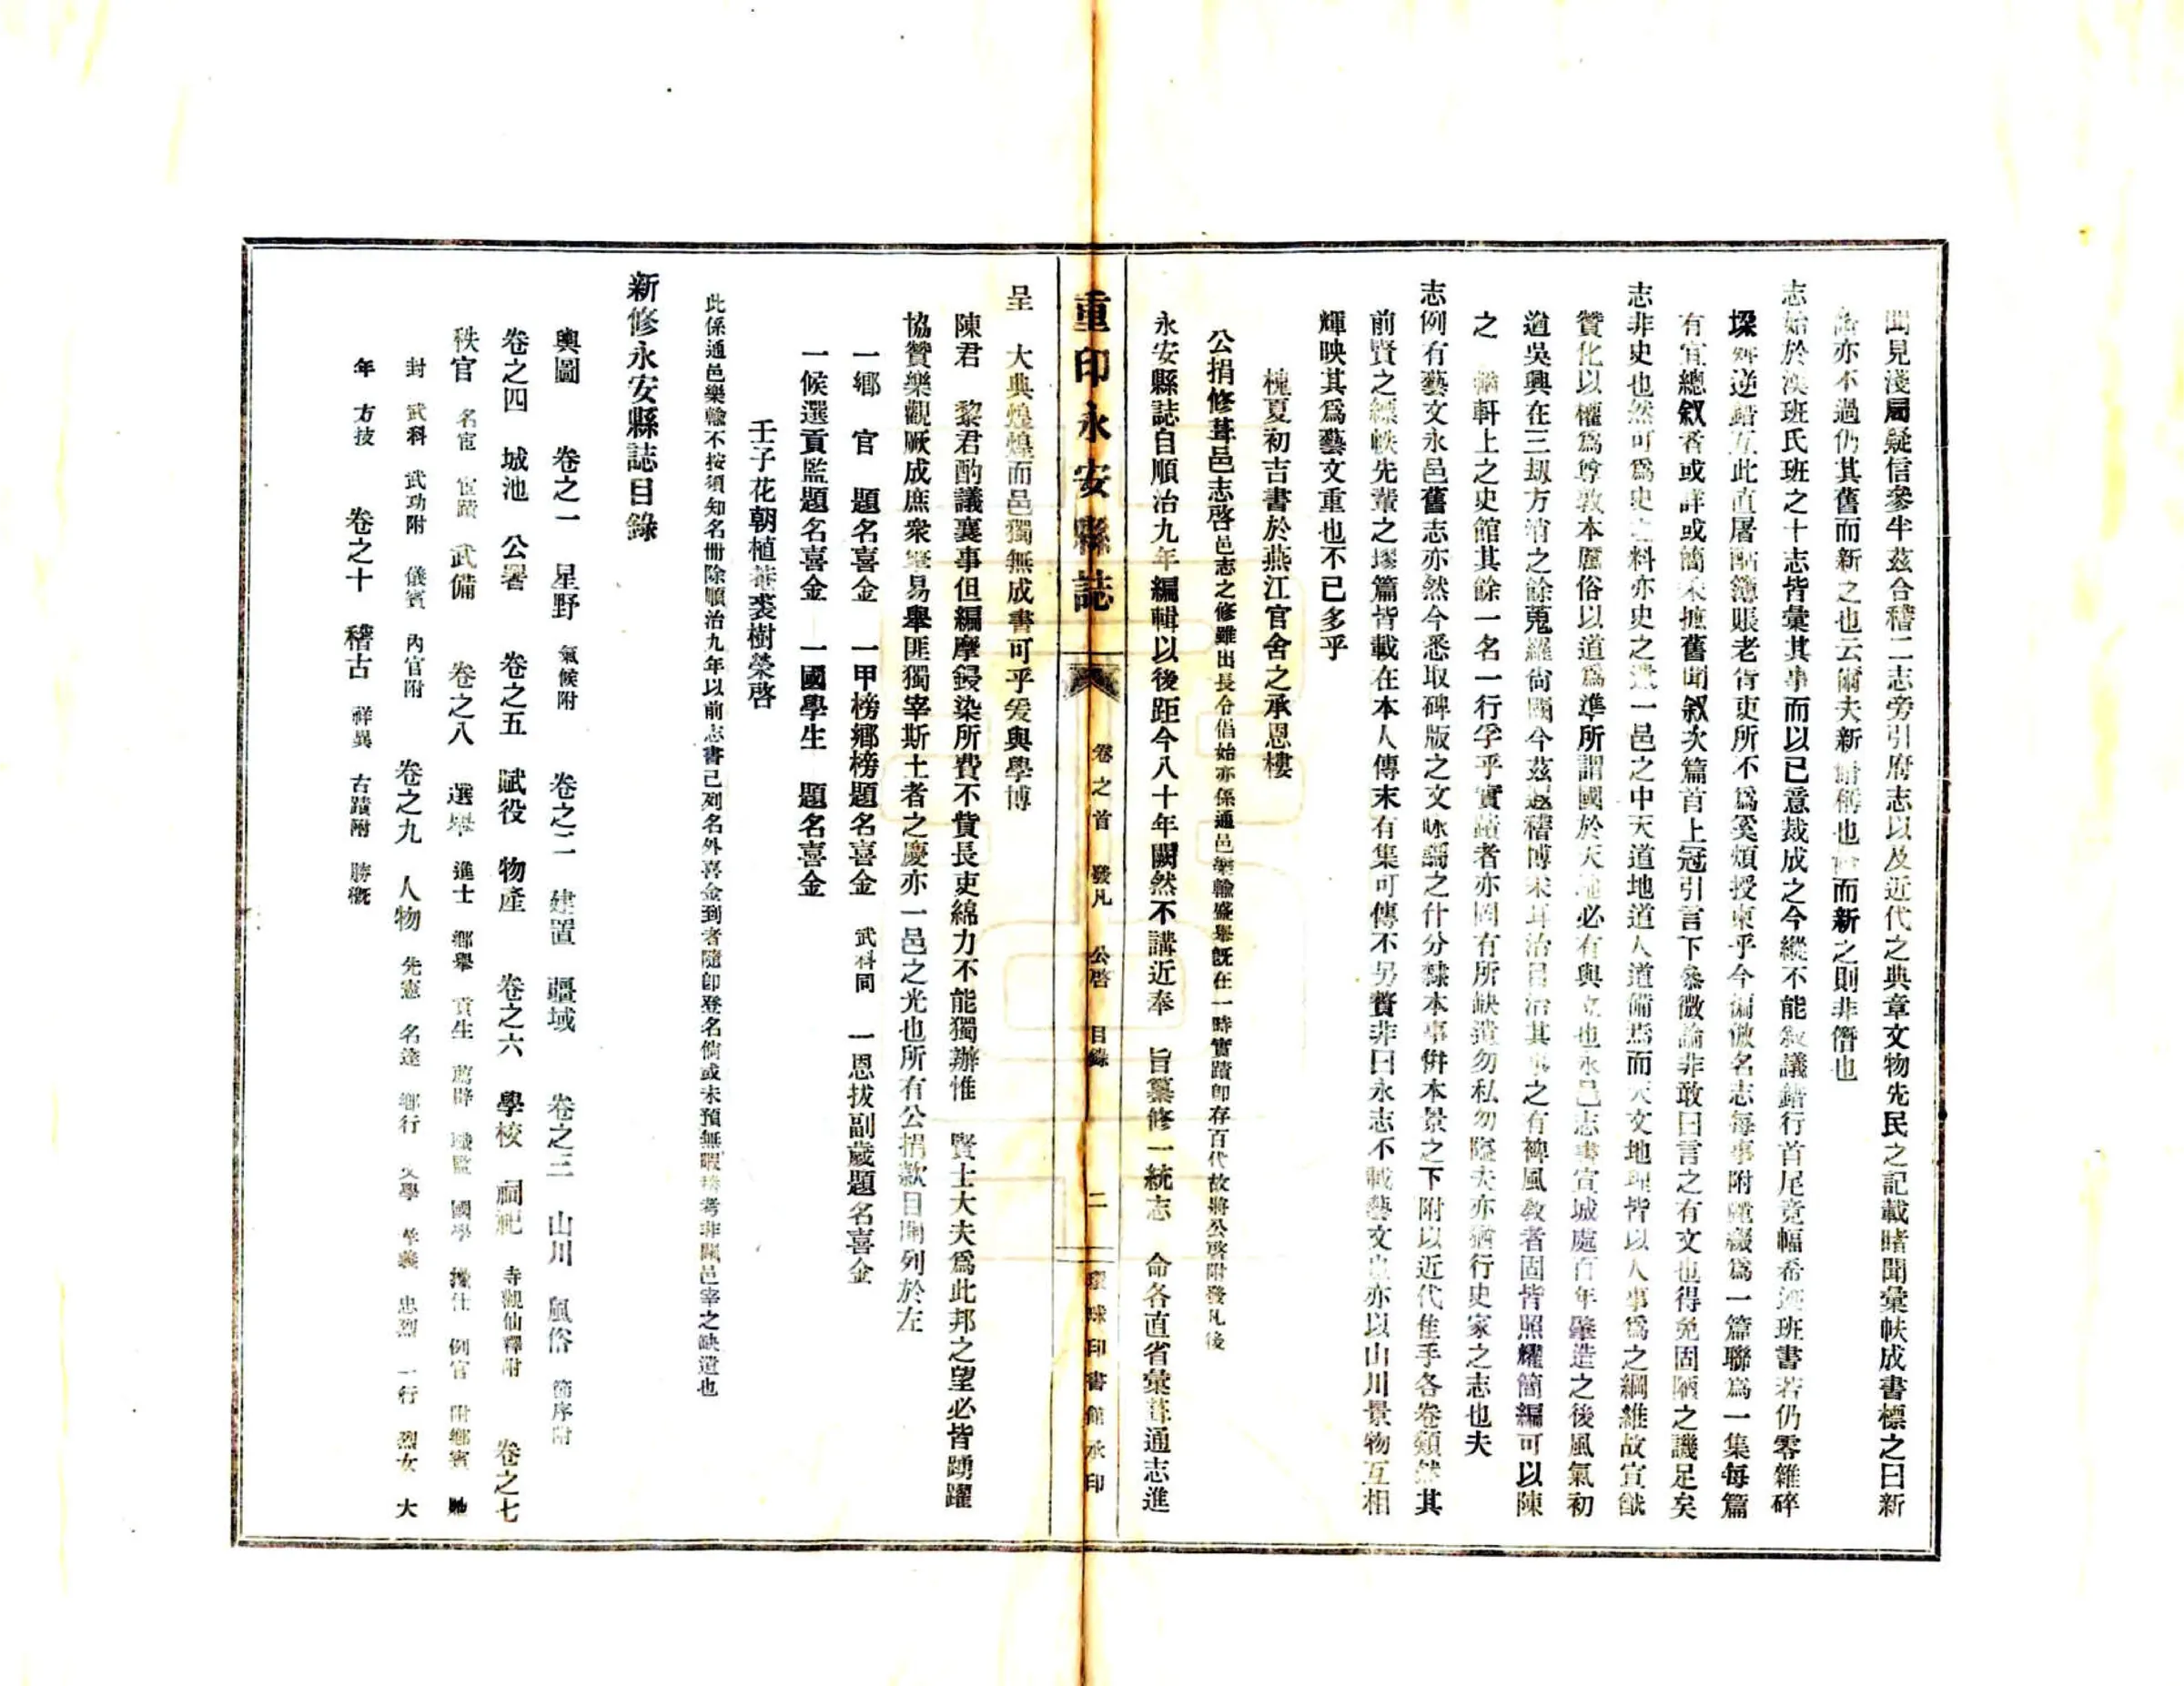 聞見淺局疑信參半茲合稽二志旁引府志以及近代之典章文物先民之記載睹聞彙帙成書標之曰新
亦不過仍其舊而新之也云爾夫新僭稱也而新之則非僭也
志始於漢班氏班之十志皆彙其事而以已意裁成之今縱不能敘議錯行首尾竟幅希逆班書若仍零雜碎
逆錯互此直屠酤簿賬老衙吏所不爲奚煩授柬乎今偏倣名志每事附麗綴爲一篇聯爲一集每篇
有宜總敘者或詳或簡采摭舊聞敘次篇首上冠引言下叅微論非敢曰言之有文也得免固陋之譏足矣
志非史也然可爲史之料亦史之遺一邑之中天道地道人道備焉而天文地理皆以人事爲之綱維故宣猷
贊化以權爲尊敦本厲俗以道爲準所謂國於天地必有與立也永邑志書宣城處百年肇造之後風氣初
遒吳興在三刼方消之餘蒐羅尚闕今茲遐稽博采耳治目治其事之有裨風敎者固皆照耀簡編可以陳
之輶軒上之史館其餘一名一行孚乎實蹟者亦罔有所缺遺勿私勿隘夫亦猶行史家之志也夫
志例有藝文永邑舊志亦然今悉取碑版之文咏謌之什分隸本事併本景之下附以近代隹手各卷頮然其
前賢之縹帙先輩之璆篇皆載在本人傳末有集可傳不另贅非曰永志不載藝文也亦以山川景物互相
輝映其爲藝文重也不已多乎
槐夏初吉書於燕江官舍之承恩樓
公捐修葺邑志啓邑志之修雖出長令倡始亦係通邑樂輸盛舉旣在一時實蹟卽存百代故將公啓附發凡後
永安縣誌自順治九年編輯以後距今八十年闕然不講近奉 旨纂修一統志 命各直省彙葺通志進
重印永安縣誌 卷之首 發凡 公啓 目錄 二 環球印書館承印
呈 大典煌煌而邑獨無成書可乎爰與學博
陳君 黎君酌議襄事但編摩鋟染所費不貲長吏綿力不能獨辦惟 賢士大夫爲此邦之望必皆踴躍
協贊樂觀厥成庶衆擎易舉匪獨宰斯土者之慶亦一邑之光也所有公捐款目開列於左
一鄉 官 題名喜金 一甲榜鄉榜題名喜金 武科同 一恩拔副歲題名喜金
一候選貢監題名喜金 一國學生 題名喜金
壬子花朝植菴裘樹榮啓
此係通邑樂輸不按須知名冊除順治九年以前志書已列名外喜金到者隨卽登名倘或未預無暇考非闕邑宰之缺遺也
新修永安縣誌目錄
輿圖 卷之一 星野 氣候附 卷之二 建置 疆域 卷之三 山川 風俗 節序附
卷之四 城池 公署 卷之五 賦役 物產 卷之六 學校 祠祀 寺觀仙釋附 卷之七
秩官 名宦 宦蹟 武備 卷之八 選舉 進士 鄉舉 貢生 薦辟 職監 國學 掾仕 例官 附鄉賓 馳
封 武科 武功附 儀賓 內官附 卷之九 人物 先憲 名達 鄉行 文學 孝義 忠烈 一行 烈女 大
年 方技 卷之十 稽古 祥異 古蹟附 勝概